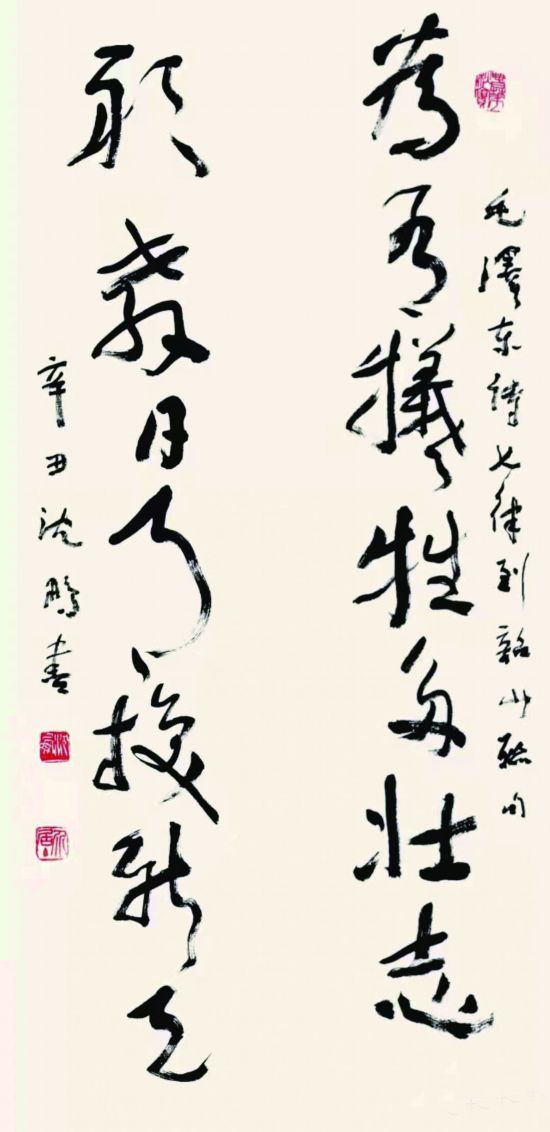 毛澤东詩七律到韶山聯句
為有犧牲多壯志
敢教日月換新天
辛丑沈鵬書